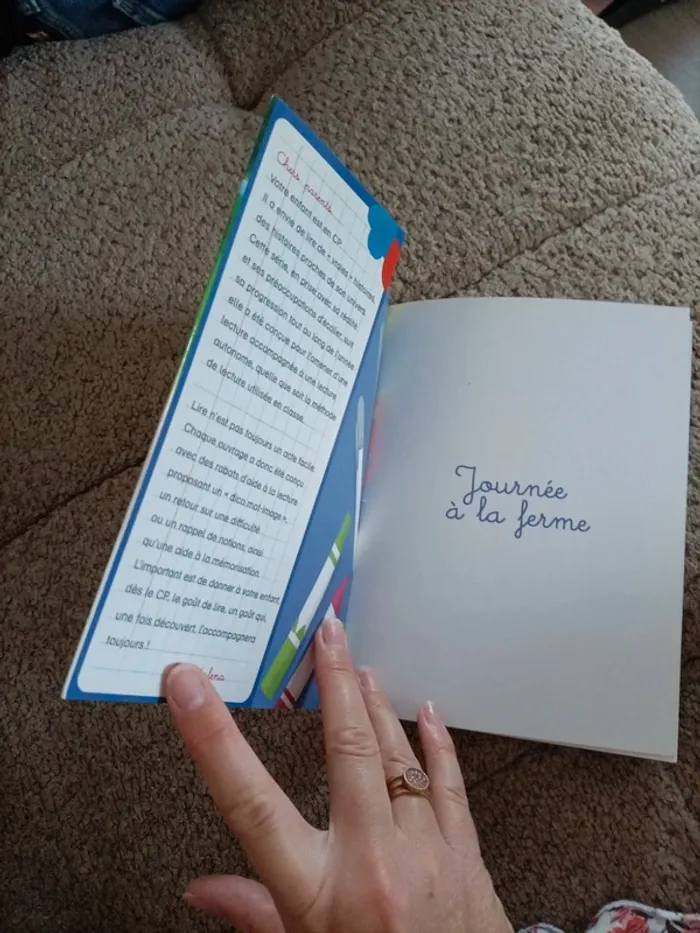 Chers parents
Votre enfant est en CP.
Il a envie de lire de « vraies » histoires,
des histoires proches de son univers
et ses préoccupations d'écolier, suit
Cette série, en prise avec sa réalité
sa progression tout au long de l'année
elle a été conçue pour l'amener d'une
lecture accompagnée à une lecture
autonome, quelle que soit la méthode
de lecture utilisée en classe.
Lire n'est pas toujours un acte facile.
Chaque ouvrage a donc été conçu
avec des rabats d'aide à la lecture
proposant un « dico mot-image »,
un retour sur une difficulté
ou un rappel de notions, ainsi
qu'une aide à la mémorisation.
L'important est de donner à votre enfant,
dès le CP, le goût de lire, un goût qui,
une fois découvert, l'accompagnera
toujours !
Journée
à la ferme